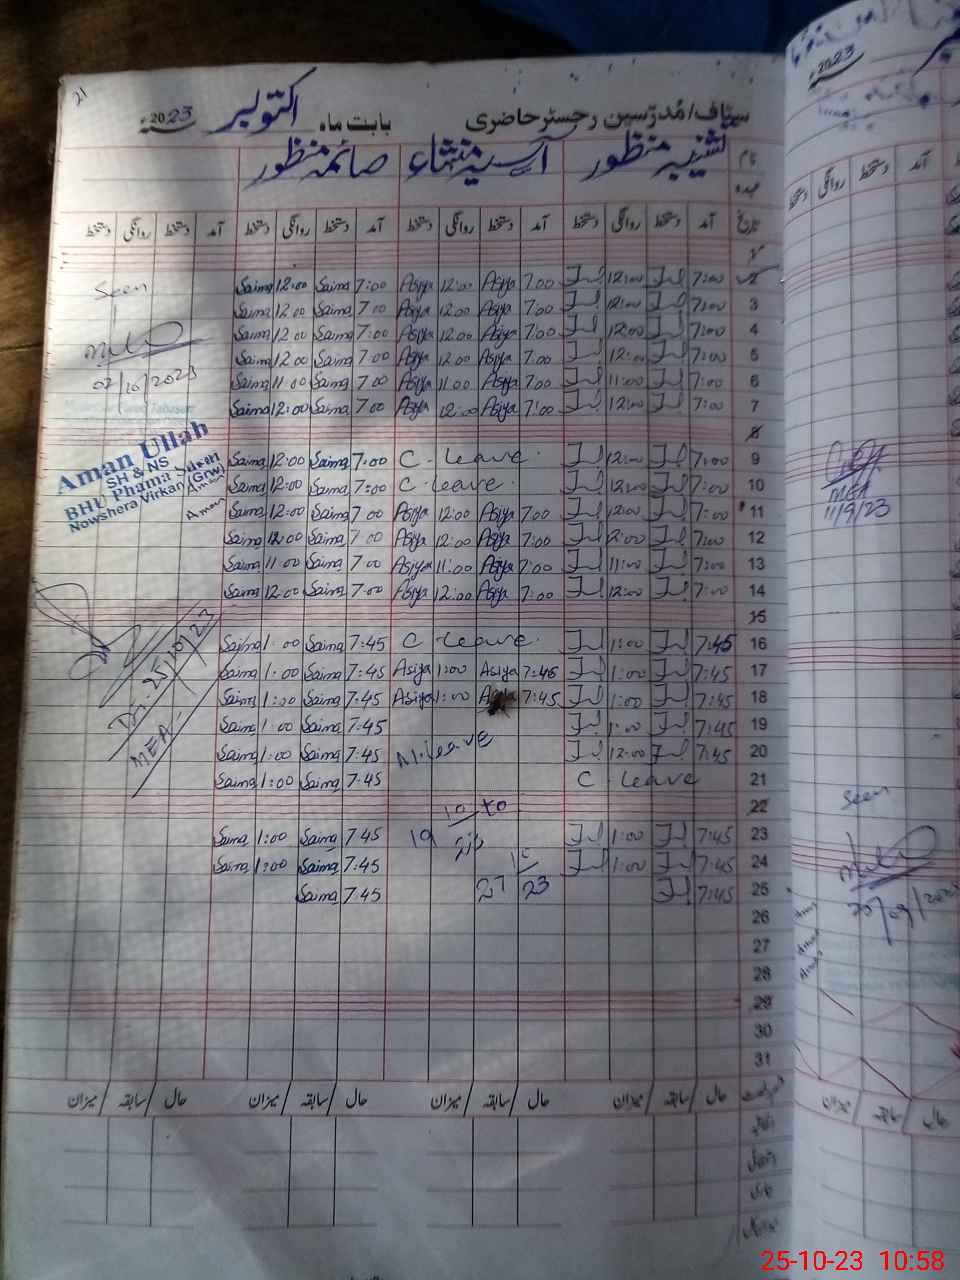 21
سٹاف/مُدرّسین رجسٹر حاضری بابت ماہ اکتوبر 2023ء
نام منظور آسیہ منشاء صائمہ منظور
عہدہ
تاریخ آمد دستخط روانگی دستخط آمد دستخط روانگی دستخط آمد دستخط روانگی دستخط آمد دستخط روانگی دستخط
1
Saima 12:00 Saima 7:00 Asiya 12:00 Asiya 7:00 12:00 7:00 2
Saima 12:00 Saima 7:00 Asiya 12:00 Asiya 7:00 12:00 7:00 3
Saima 12:00 Saima 7:00 Asiya 12:00 Asiya 7:00 12:00 7:00 4
Saima 12:00 Saima 7:00 Asiya 12:00 Asiya 7:00 12:00 7:00 5
Saima 11:00 Saima 7:00 Asiya 11:00 Asiya 7:00 11:00 7:00 6
Saima 12:00 Saima 7:00 Asiya 12:00 Asiya 7:00 12:00 7:00 7
8
Saima 12:00 Saima 7:00 C. leave. 12:00 7:00 9
Saima 12:00 Saima 7:00 C. leave. 12:00 7:00 10
Saima 12:00 Saima 7:00 Asiya 12:00 Asiya 7:00 12:00 7:00 11
Saima 12:00 Saima 7:00 Asiya 12:00 Asiya 7:00 12:00 7:00 12
Saima 11:00 Saima 7:00 Asiya 11:00 Asiya 7:00 11:00 7:00 13
Saima 12:00 Saima 7:00 Asiya 12:00 Asiya 7:00 12:00 7:00 14
15
Saima 1:00 Saima 7:45 C leave. 1:00 7:45 16
Saima 1:00 Saima 7:45 Asiya 1:00 Asiya 7:45 1:00 7:45 17
Saima 1:00 Saima 7:45 Asiya 1:00 7:45 1:00 7:45 18
Saima 1:00 Saima 7:45 1:00 7:45 19
Saima 1:00 Saima 7:45 M. leave 12:00 7:45 20
Saima 1:00 Saima 7:45 C. leave 21
10 to
22
Saima 1:00 Saima 7:45 19 1:00 7:45 23
Saima 1:00 Saima 7:45 10 1:00 7:45 24
Saima 7:45 27 23 7:45 25
26
27
28
29
30
31
حال سابقہ میزان حال سابقہ میزان حال سابقہ میزان حال سابقہ میزان
Seen
02/10/2023
Aman Ullah
SH & NS
BHU Phama Sareh
Nowshera Virkan (Grw)
Aman
Aman
Dt: 25/10/23
MEA
2023ء
دستخط روانگی دستخط آمد
MEA
11/9/23
Seen
20/09/2023
میزان سابقہ حال
25-10-23 10:58